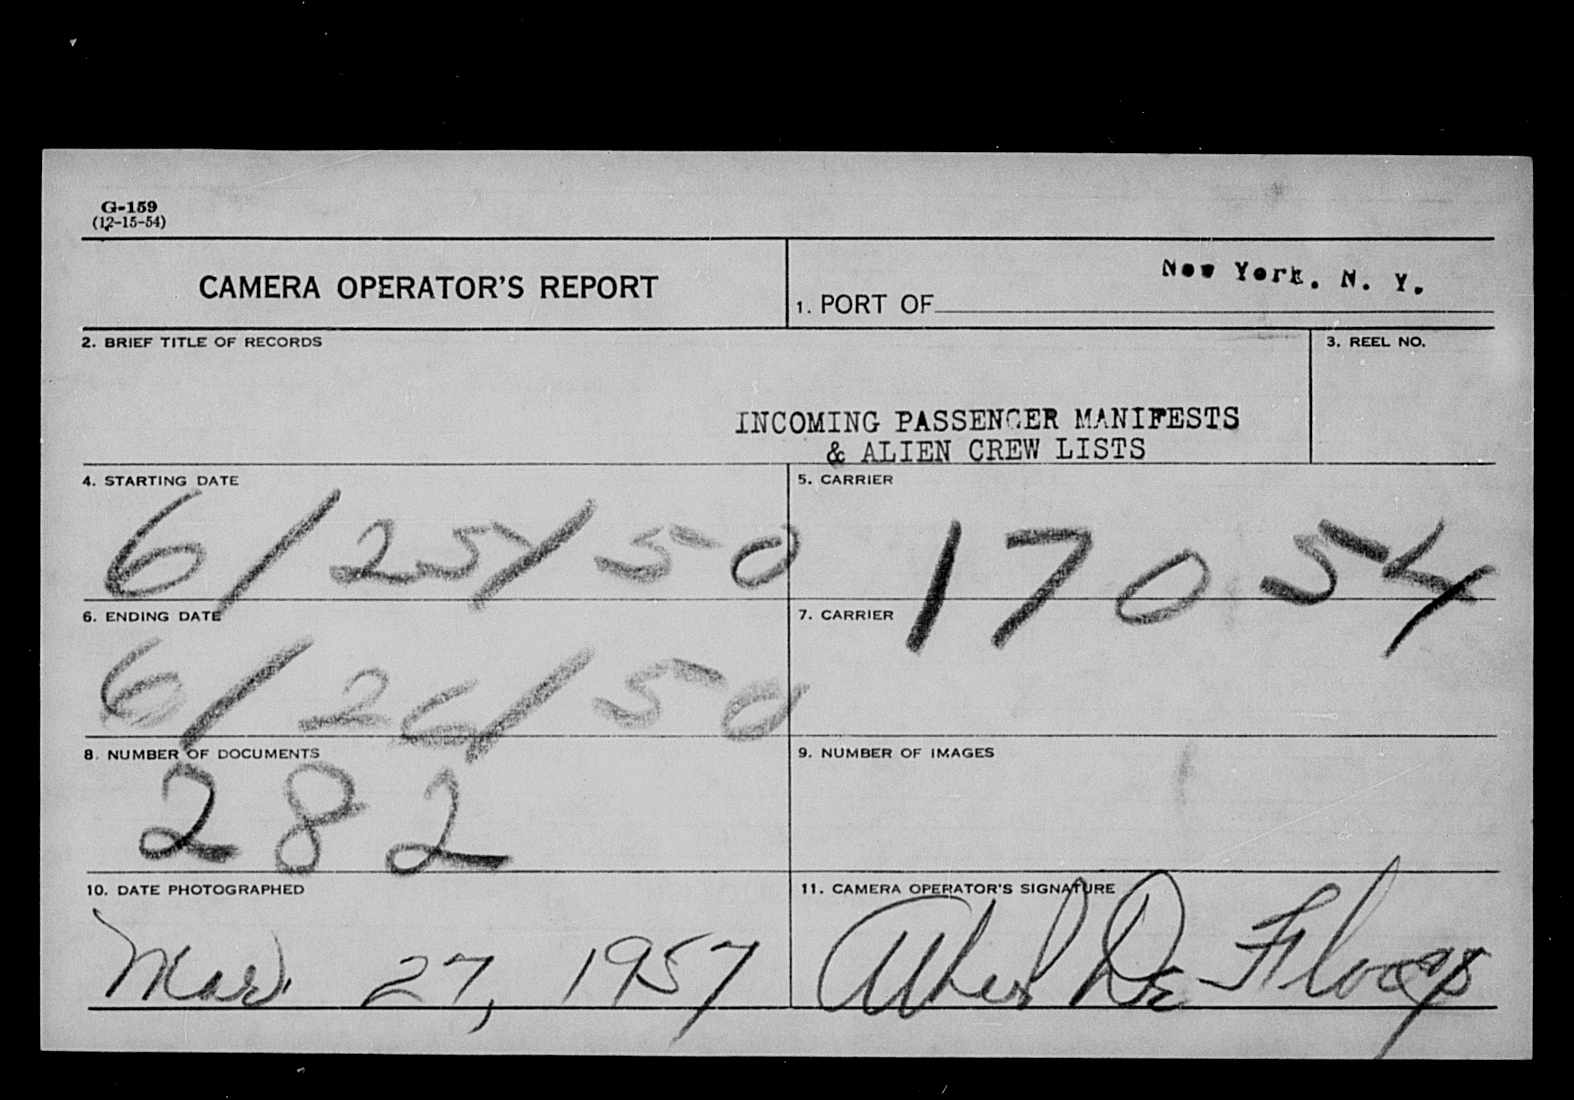 G-159
(12-15-54)
CAMERA OPERATOR'S REPORT
1. PORT OF New York, N. Y.
2. BRIEF TITLE OF RECORDS
3. REEL NO.
INCOMING PASSENGER MANIFESTS
& ALIEN CREW LISTS
4. STARTING DATE
6/25/50
5. CARRIER
17054
6. ENDING DATE
6/26/50
7. CARRIER
8. NUMBER OF DOCUMENTS
282
9. NUMBER OF IMAGES
10. DATE PHOTOGRAPHED
Mar. 27, 1957
11. CAMERA OPERATOR'S SIGNATURE
De